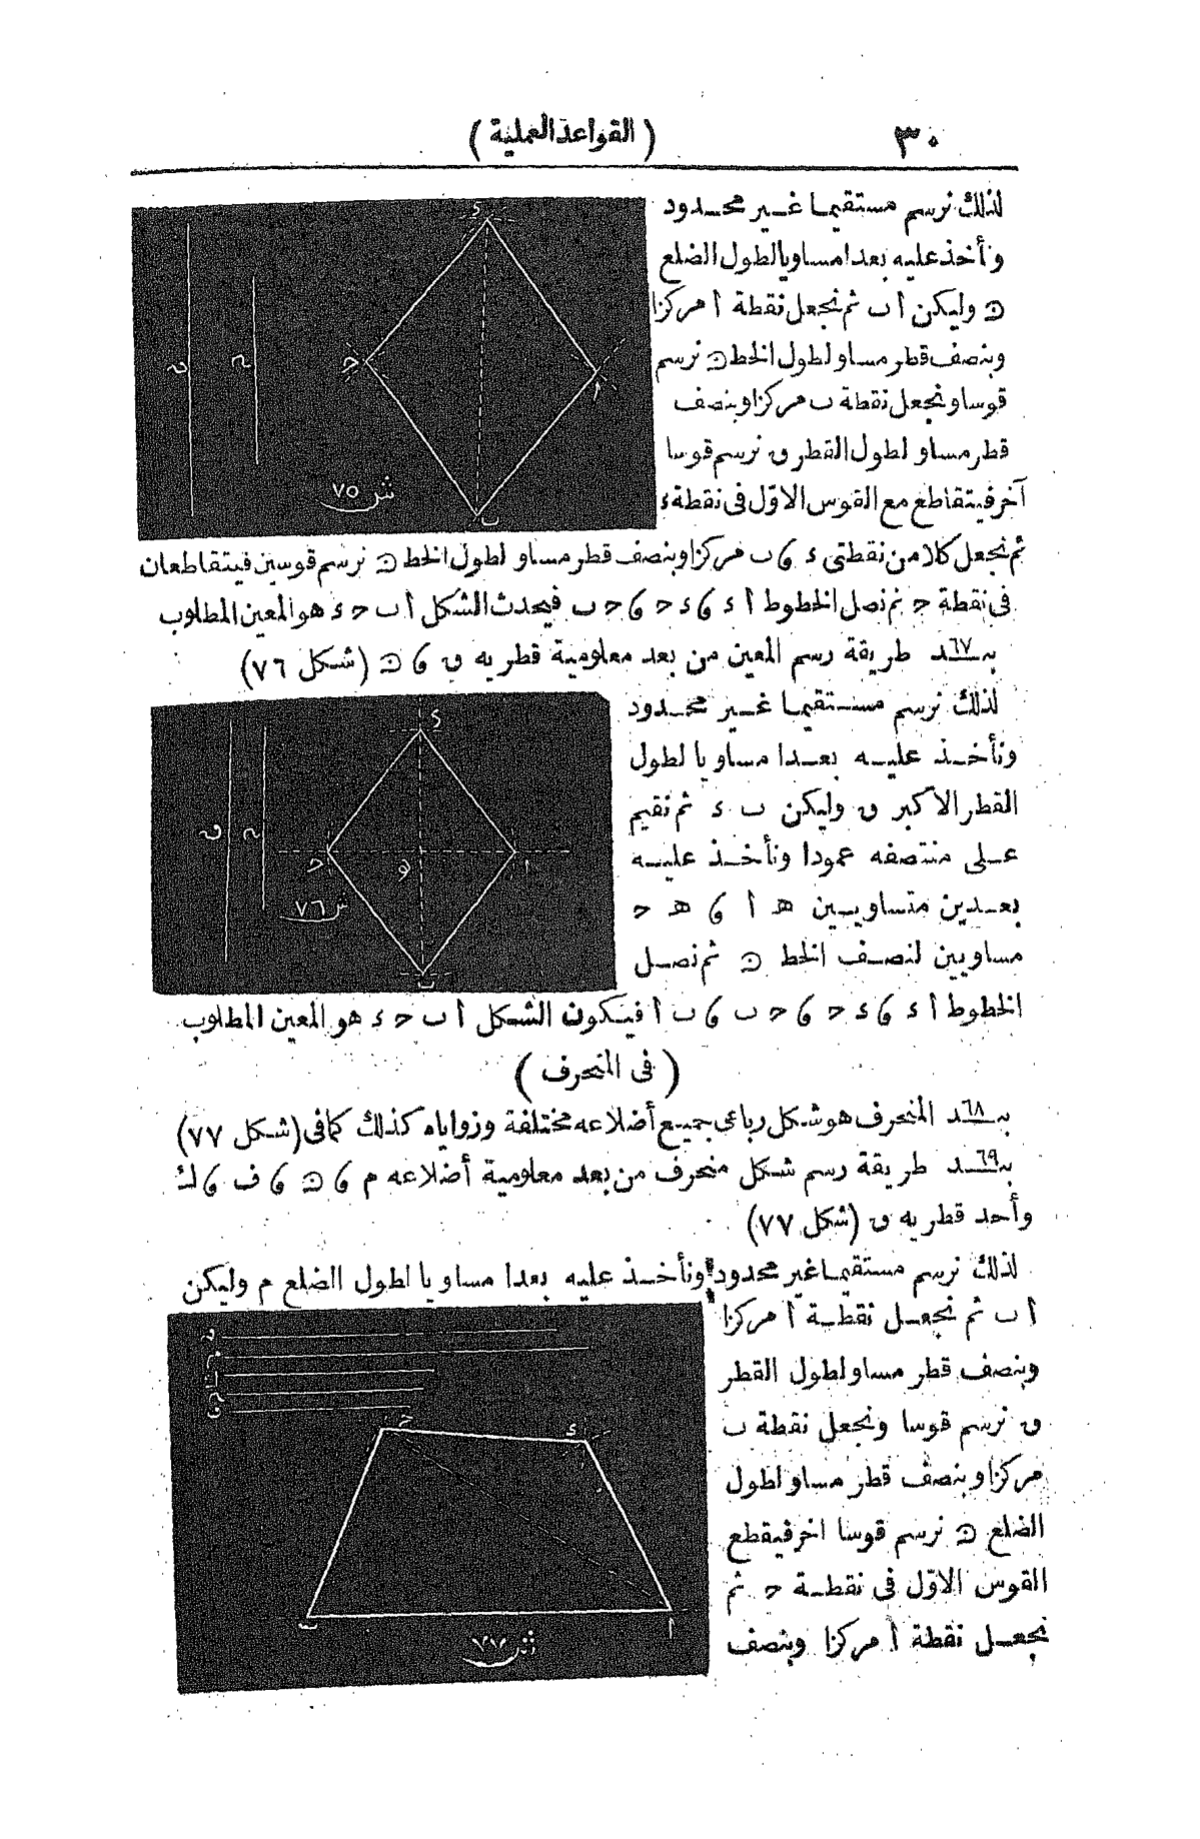 ٣٠
(القواعد العملية)
لذلك نرسم مستقيما غير محدود
وأخذ عليه بعدا مساويا لطول الضلع
ﻥ وليكن أ ب ثم نجعل نقطة أ مركزا
وبنصف قطر مساو لطول الخط ﻥ نرسم
قوسا ونجعل نقطة ب مركزا وبنصف
قطر مساو لطول القطر ق نرسم قوسا
آخر فيتقاطع مع القوس الاوّل فى نقطة ء
ش ٧٥
ثم نجعل كلا من نقطتى ء و ب مركزا وبنصف قطر مساو لطول الخط ﻥ نرسم قوسين فيتقاطعان
فى نقطة ح ثم نصل الخطوط أ ء و ء ح و ح ب فيحدث الشكل أ ب ح ء هو المعين المطلوب
بـ٦٧ـد طريقة رسم المعين من بعد معلومية قطريه ق و ﻥ (شكل ٧٦)
لذلك نرسم مستقيما غير محدود
ونأخذ عليه بعدا مساويا لطول
القطر الاكبر ق وليكن ب ء ثم نقيم
على منتصفه عمودا ونأخذ عليه
بعدين متساويين هـ أ و هـ ح
مساويين لنصف الخط ﻥ ثم نصل
ش ٧٦
الخطوط أ ء و ء ح و ح ب و ب أ فيتكون الشكل أ ب ح ء هو المعين المطلوب
(فى المنحرف)
بـ٦٨ـد المنحرف هو شكل رباعى جميع أضلاعه مختلفة وزواياه كذلك كما فى (شكل ٧٧)
بـ٦٩ـد طريقة رسم شكل منحرف من بعد معلومية أضلاعه م و ﻥ و ف و ك
وأحد قطريه ق (شكل ٧٧)
لذلك نرسم مستقيما غير محدود ونأخذ عليه بعدا مساويا لطول الضلع م وليكن
أ ب ثم نجعل نقطة أ مركزا
وبنصف قطر مساو لطول القطر
ق نرسم قوسا ونجعل نقطة ب
مركزا وبنصف قطر مساو لطول
الضلع ﻥ نرسم قوسا اخر فيقطع
القوس الاوّل فى نقطة ح ثم
نجعل نقطة أ مركزا وبنصف
ش ٧٧